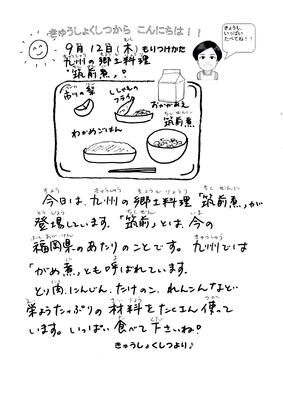 きゅうしょくしつから こんにちは！！
きょうも、
いっぱい
たべてね！！
9月12日(木)もりつけかた
九州の郷土料理
"筑前煮"。
ししゃもの
フライ
おかかあえ
筑前煮
わかめごはん
今日は、九州の郷土料理「筑前煮」が
登場しています。「筑前」とは、今の
福岡県のあたりのことです。九州では
「がめ煮」とも呼ばれています。
とり肉、にんじん、たけのこ、れんこんなど
栄ようたっぷりの材料をたくさん使って
います。いっぱい食べて下さいね！
きゅうしょくしつより♪